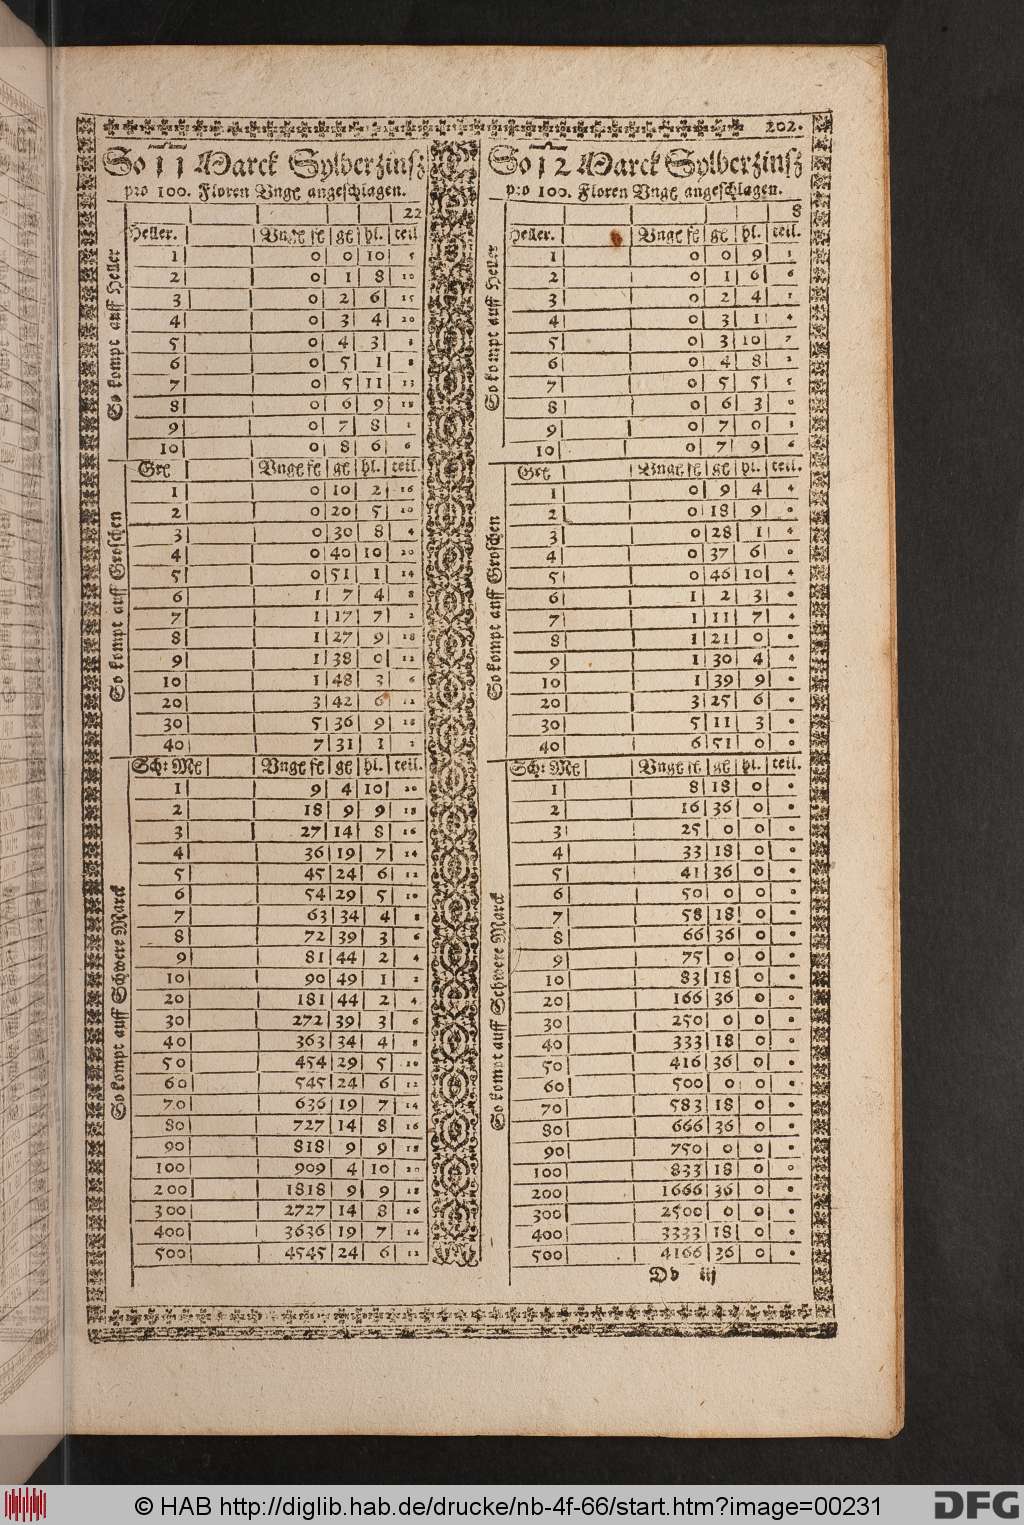 202.
So 11 Marck Sylberzinsz
pro 100. Floren Vngr angeschlagen.
22
So kompt auff Heller
Heller. Vngr fl gr hl. teil
1 0 0 10 5
2 0 1 8 10
3 0 2 6 15
4 0 3 4 20
5 0 4 3 3
6 0 5 1 8
7 0 5 11 13
8 0 6 9 18
9 0 7 8 1
10 0 8 6 6
So kompt auff Groschen
Grl Vngr fl gr hl. teil.
1 0 10 2 16
2 0 20 5 10
3 0 30 8 4
4 0 40 10 20
5 0 51 1 14
6 1 7 4 8
7 1 17 7 2
8 1 27 9 18
9 1 38 0 12
10 1 48 3 6
20 3 42 6 12
30 5 36 9 18
40 7 31 1 2
So kompt auff Schwere Marck
Sch: Mr Vngr fl gr hl. teil.
1 9 4 10 20
2 18 9 9 18
3 27 14 8 16
4 36 19 7 14
5 45 24 6 12
6 54 29 5 10
7 63 34 4 8
8 72 39 3 6
9 81 44 2 4
10 90 49 1 2
20 181 44 2 4
30 272 39 3 6
40 363 34 4 8
50 454 29 5 10
60 545 24 6 12
70 636 19 7 14
80 727 14 8 16
90 818 9 9 18
100 909 4 10 20
200 1818 9 9 18
300 2727 14 8 16
400 3636 19 7 14
500 4545 24 6 12
So 12 Marck Sylberzinsz
pro 100. Floren Vngr angeschlagen.
8
So kompt auff Heller
Heller. Vngr fl gr hl. teil.
1 0 0 9 3
2 0 1 6 6
3 0 2 4 1
4 0 3 1 4
5 0 3 10 7
6 0 4 8 2
7 0 5 5 5
8 0 6 3 0
9 0 7 0 3
10 0 7 9 6
So kompt auff Groschen
Grl Vngr fl gr hl. teil.
1 0 9 4 4
2 0 18 9 0
3 0 28 1 4
4 0 37 6 0
5 0 46 10 4
6 1 2 3 0
7 1 11 7 4
8 1 21 0 0
9 1 30 4 4
10 1 39 9 0
20 3 25 6 0
30 5 11 3 0
40 6 51 0 0
So kompt auff Schwere Marck
Sch: Mr Vngr fl gr hl. teil.
1 8 18 0 0
2 16 36 0 0
3 25 0 0 0
4 33 18 0 0
5 41 36 0 0
6 50 0 0 0
7 58 18 0 0
8 66 36 0 0
9 75 0 0 0
10 83 18 0 0
20 166 36 0 0
30 250 0 0 0
40 333 18 0 0
50 416 36 0 0
60 500 0 0 0
70 583 18 0 0
80 666 36 0 0
90 750 0 0 0
100 833 18 0 0
200 1666 36 0 0
300 2500 0 0 0
400 3333 18 0 0
500 4166 36 0 0
Dd iij
© HAB http://diglib.hab.de/drucke/nb-4f-66/start.htm?image=00231
DFG